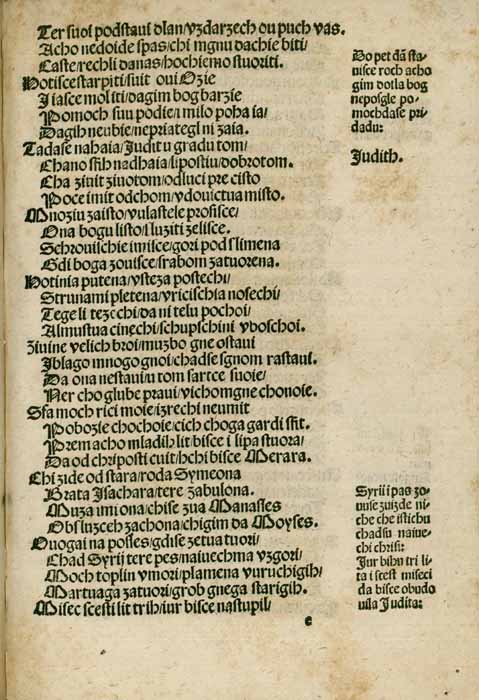 Ter suoi podstaui dlan/vzdarzech ou puch vas.
Acho nedoide spas/chi mgnu dachie biti/
Caste/rechli danas/hochiemo stuoriti.
Hotisce starpiti/suit oui Ozie
Iiasce moliti/dagim bog barzie
Pomoch suu podie/i milo poha ia/
Dagih neubie/nepriategl ni zaia.
Tadase nahaia/Juditu gradu tom/
Chano stih nadhaia/lipostiu/dobrotom.
Cha ziuit ziuotom/odluci pre cisto
Poce imit odchom/vdouictua misto.
Mnoziu zaisto/vulastele prosisce/
Ona bogu listo/sluziti zelisce.
Schrouischie imisce/gori pod slimena
Gdi boga zouisce/srabom zatuorena.
Hotinia putena/vsteza postechi/
Strunami pletena/vricischia nosechi/
Tege li tezechi/da ni telu pochoi/
Almustua cinechi/schupschini vboschoi.
Ziuine velich broi/muzbo gne ostaui
Iblago mnogo gnoi/chadse sgnom rastaui.
Da ona nestaui/u tom sartce suoie/
Ner cho glube praui/vichomgne chonoie.
Sfa moch rici moie/izrechi neumit
Pobozie chochoie/cich choga gardi stit.
Prem acho mladih lit/bisce i lipa stuora/
Da od chriposti cuit/hchi bisce Merara.
Chi zide od stara/roda Symeona
Brata Isachara/tere zabulona.
Muza imi ona/chise zua Manasses
Obsluzceh zachona/chigim da Moyses.
Ouogai na posses/gdise zetua tuori/
Chad Syrij tere pes/naiuechma vzgori/
Moch toplin vmori/plamena vuruchigih/
Martuaga zatuori/grob gnega starigih.
Misec scesti lit trih/iur bisce nastupil/
e
Do pet dā sta-
nisce roch acho
gim dotla bog
neposgle po-
mochdase pri-
dadu:
Judith.
Syrii i pas zo-
uuse zuizde ni-
che che istichu
chadsu naiue-
chi chrisi:
Iur bihu tri li-
ta i scest miseci
da bisce obudo
uila Judita: